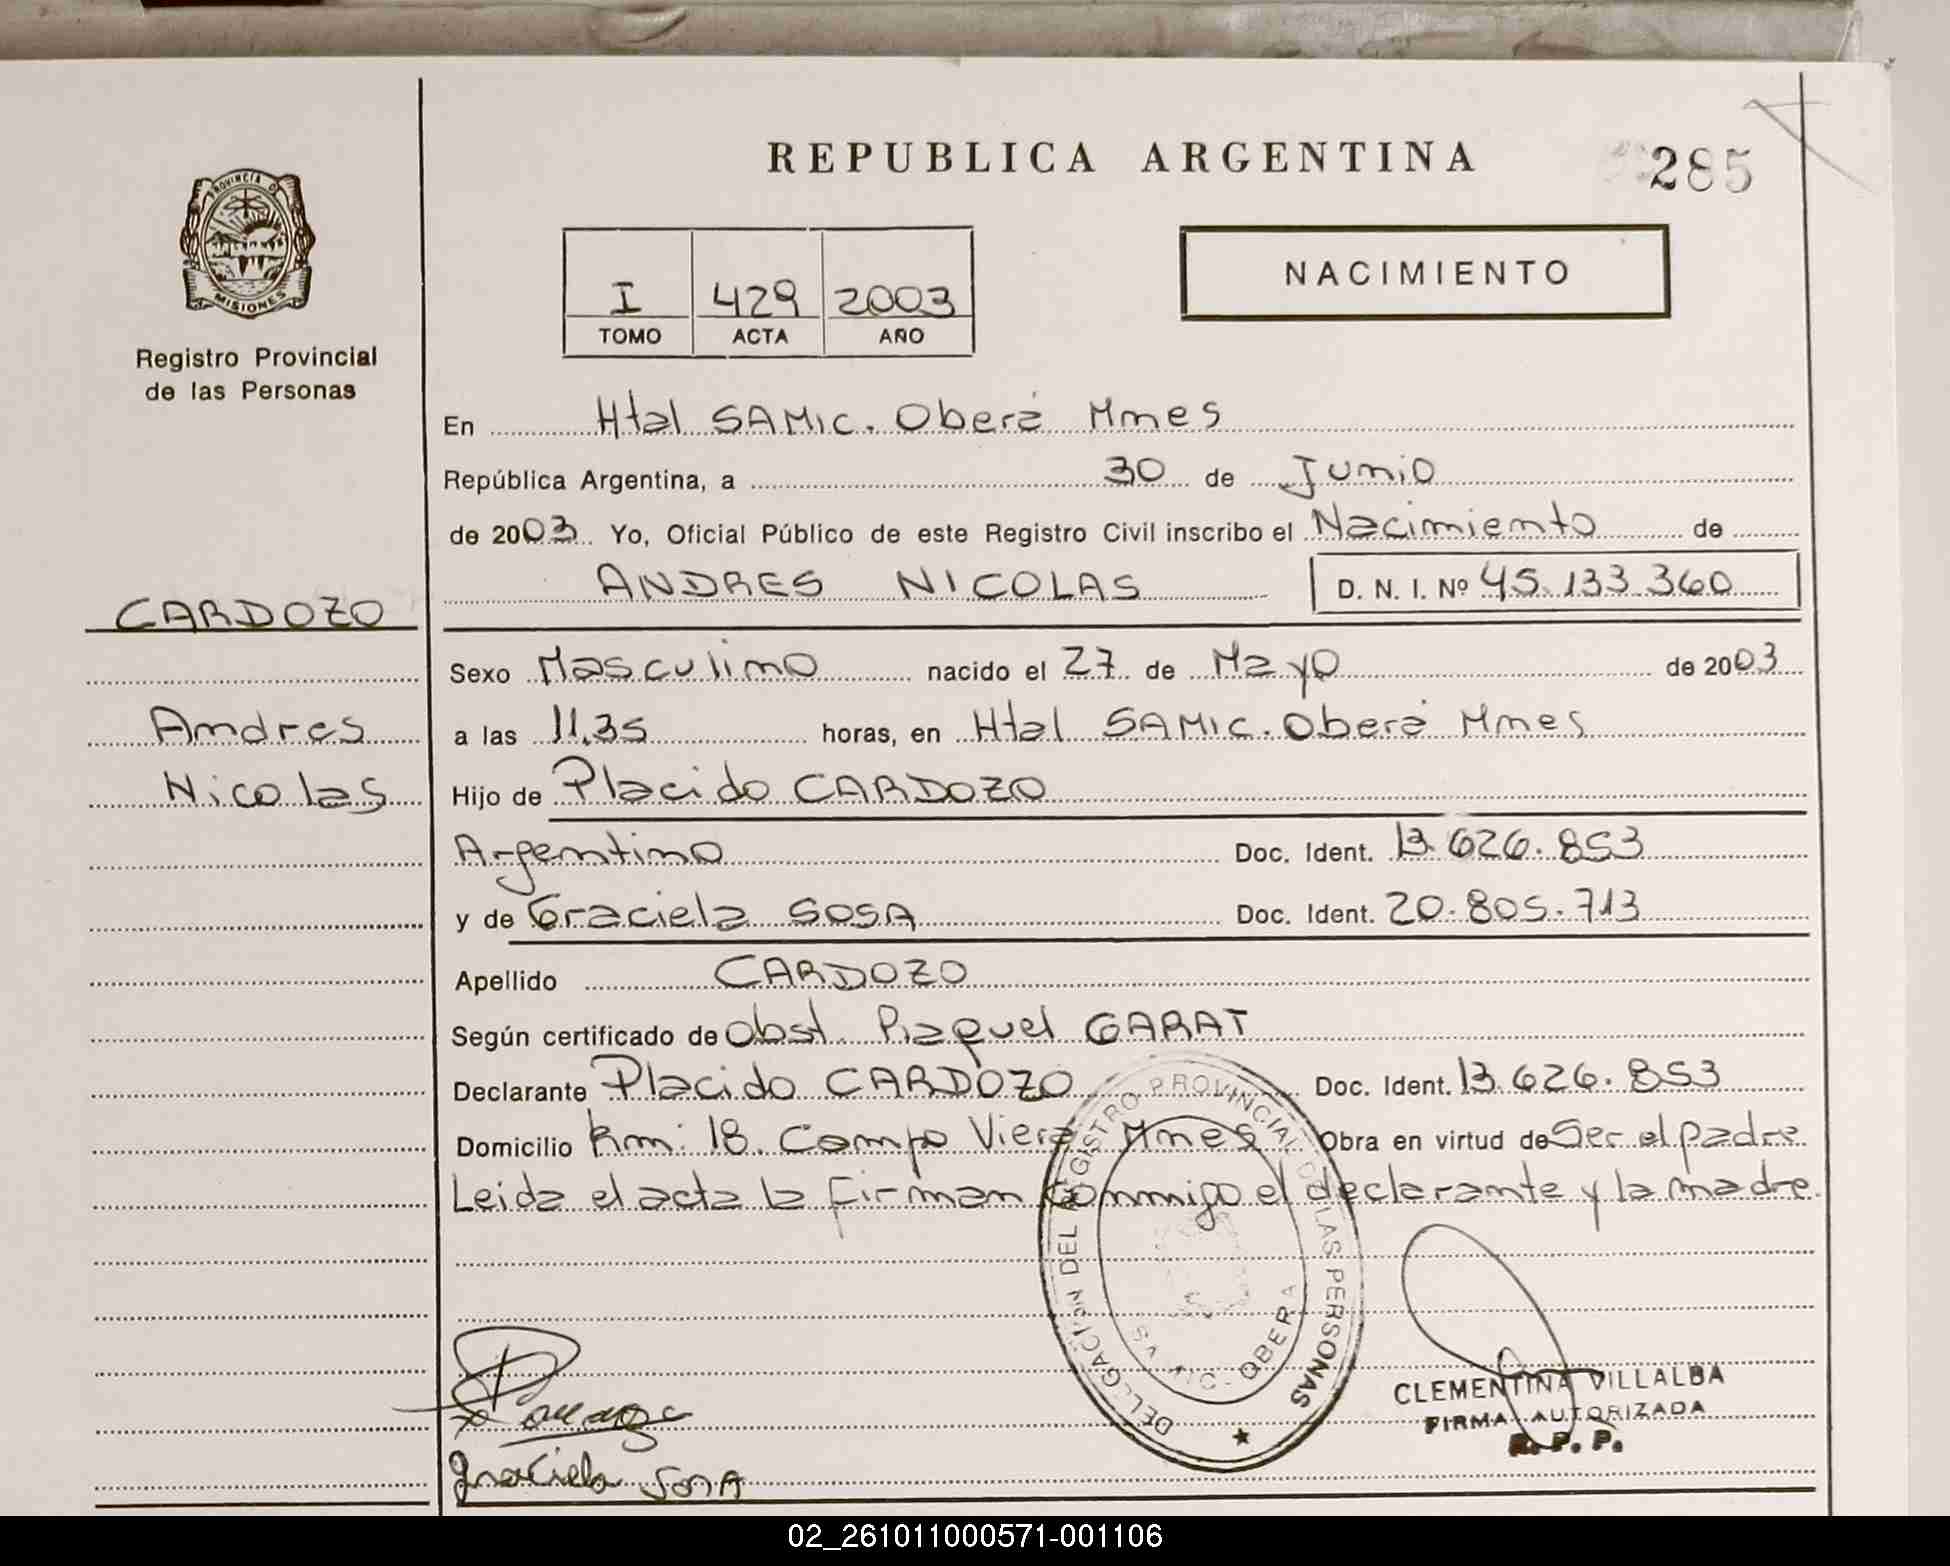 REPUBLICA ARGENTINA
285
PROVINCIA D
MISIONES
Registro Provincial
de las Personas
I 429 2003
TOMO ACTA AÑO
NACIMIENTO
En Htal SAMIC. Oberá Mnes
República Argentina, a 30 de Junio
de 2003 Yo, Oficial Público de este Registro Civil inscribo el Nacimiento de
ANDRES NICOLAS D. N. I. Nº 45.133.360
CARDOZO
Andres
Nicolas
Sexo Masculino nacido el 27 de Mayo de 2003
a las 11,35 horas, en Htal SAMIC. Oberá Mnes
Hijo de Placido CARDOZO
Argentino Doc. Ident. 13.626.853
y de Graciela SOSA Doc. Ident. 20.805.713
Apellido CARDOZO
Según certificado de Obst. Raquel GARAT
Declarante Placido CARDOZO Doc. Ident. 13.626.853
Domicilio Km: 18. Campo Viera Mnes Obra en virtud de Ser el padre
Leida el acta la firman conmigo el declarante y la madre.
DELEGACION DEL REGISTRO PROVINCIAL DE LAS PERSONAS
OBERA
CLEMENTINA VILLALBA
FIRMA AUTORIZADA
R. P. P.
Graciela SOSA
02_261011000571-001106